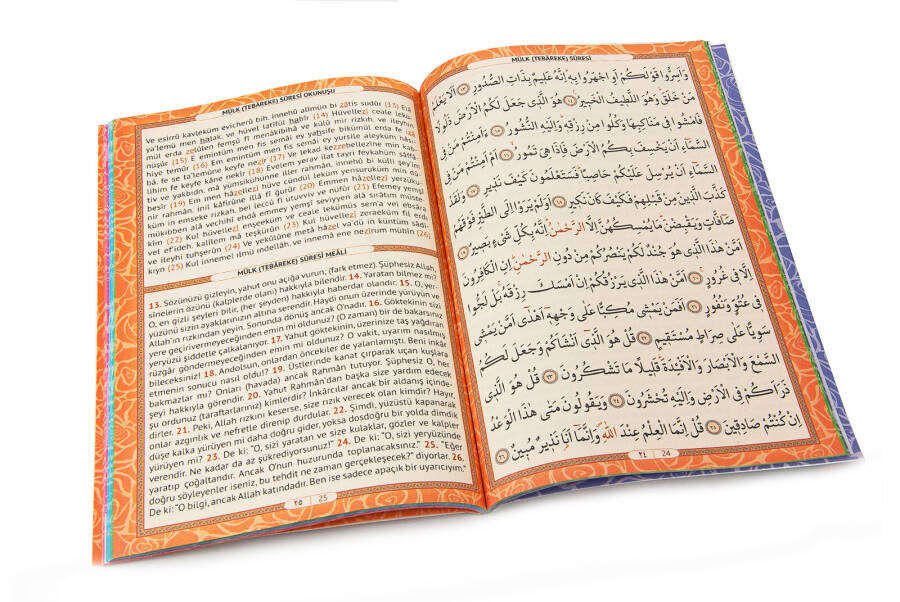 MÜLK (TEBÂREKE) SÛRESİ OKUNUŞU
Ve esirrû kavleküm evicherû bih, innehû alîmün bi zâtis sudûr (13) Elâ
ya'lemü men halak ve hüvel latîful habîr (14) Hüvellezî ceale lekü-
mül erda zelûlen femşû fî menâkibihâ ve külû mir rizkıh, ve ileyhin
nüşûr (15) E emintüm men fis semâi ey yahsife bikümül erda fe izâ
hiye temûr (16) Em emintüm men fis semâi ey yursile aleyküm hâsı-
bâ, fe se ta'lemûne keyfe nezîr (17) Ve lekad kezzebellezîne min kab-
lihim fe keyfe kâne nekîr (18) Evelem yerav ilat tayri fevkahüm sâffâ-
tiv ve yakbıdn, mâ yümsikühünne iller rahmân, innehû bi külli şey'im
besîr (19) Em men hâzellezî hüve cündül leküm yensuruküm min dû-
nir rahmân, inil kâfirûne illâ fî ğurûr (20) Emmen hâzellezî yerzüku-
küm in emseke rizkah, bel leccû fî utuvviv ve nüfûr (21) Efemey yemşî
mükibben alâ vechihî ehdâ emmey yemşî seviyyen alâ sırâtım müste-
kîm (22) Kul hüvellezî enşeeküm ve ceale lekümüs sem'a vel ebsâra
vel ef'ideh, kalîlem mâ teşkürûn (23) Kul hüvellezî zeraeküm fil erdı
ve ileyhi tuhşerûn (24) Ve yekûlûne metâ hâzel va'dü in küntüm sâdi-
kıyn (25) Kul innemel ılmü ındellâh, ve innemâ ene nezîrum mübîn (26)
MÜLK (TEBÂREKE) SÛRESİ MEÂLİ
13. Sözünüzü gizleyin, yahut onu açığa vurun; (fark etmez). Şüphesiz Allah,
sînelerin özünü (kalplerde olanı) hakkıyla bilendir. 14. Yaratan bilmez mi?
O, en gizli şeyleri bilir, (her şeyden) hakkıyla haberdar olandır. 15. O, yer-
yüzünü sizin ayaklarınızın altına serendir. Haydi onun üzerinde yürüyün ve
Allah'ın rızkından yeyin. Sonunda dönüş ancak O'nadır. 16. Göktekinin sizi
yere geçirivermeyeceğinden emin mi oldunuz? (O zaman) bir de bakarsınız
yeryüzü şiddetle çalkalanıyor. 17. Yahut göktekinin, üzerinize taş yağdıran
rüzgâr göndermeyeceğinden emin mi oldunuz? O vakit, uyarım nasılmış
bileceksiniz! 18. Andolsun, onlardan öncekiler de yalanlamıştı. Beni inkâr
etmenin sonucu nasıl oldu! 19. Üstlerinde kanat çırparak uçan kuşlara
bakmazlar mı? Onları (havada) ancak Rahmân tutuyor. Şüphesiz O, her
şeyi hakkıyla görendir. 20. Yahut Rahmân'dan başka size yardım edecek
şu ordunuz (taraftarlarınız) kimlerdir? İnkârcılar ancak bir aldanış içinde-
dirler. 21. Peki, Allah rızkını keserse, size rızık verecek olan kimdir? Hayır,
onlar azgınlık ve nefretle direnip durdular. 22. Şimdi, yüzüstü kapanarak
düşe kalka yürüyen mi daha doğru gider, yoksa dosdoğru bir yolda dimdik
yürüyen mi? 23. De ki: "O, sizi yaratan ve size kulaklar, gözler ve kalpler
verendir. Ne kadar da az şükrediyorsunuz!" 24. De ki: "O, sizi yeryüzünde
yaratıp çoğaltandır. Ancak O'nun huzurunda toplanacaksınız." 25. "Eğer
doğru söyleyenler iseniz, bu tehdit ne zaman gerçekleşecek?" diyorlar. 26.
De ki: "O bilgi, ancak Allah katındadır. Ben ise sadece apaçık bir uyarıcıyım."
٢٥ 25
MÜLK (TEBÂREKE) SÛRESİ
وَاَسِرُّوا قَوْلَكُمْ اَوِ اجْهَرُوا بِهٖ اِنَّهُ عَلِيمٌ بِذَاتِ الصُّدُورِ ﴿١٣﴾ اَلَا يَعْلَمُ
مَنْ خَلَقَ وَهُوَ اللَّطِيفُ الْخَبِيرُ ﴿١٤﴾ هُوَ الَّذِى جَعَلَ لَكُمُ الْاَرْضَ ذَلُولًا
فَامْشُوا فِى مَنَاكِبِهَا وَكُلُوا مِنْ رِزْقِهٖ وَاِلَيْهِ النُّشُورُ ﴿١٥﴾ ءَاَمِنْتُمْ مَنْ فِى
السَّمَٓاءِ اَنْ يَخْسِفَ بِكُمُ الْاَرْضَ فَاِذَا هِىَ تَمُورُ ﴿١٦﴾ اَمْ اَمِنْتُمْ مَنْ فِى
السَّمَٓاءِ اَنْ يُرْسِلَ عَلَيْكُمْ حَاصِبًا فَسَتَعْلَمُونَ كَيْفَ نَذِيرِ ﴿١٧﴾ وَلَقَدْ
كَذَّبَ الَّذِينَ مِنْ قَبْلِهِمْ فَكَيْفَ كَانَ نَكِيرِ ﴿١٨﴾ اَوَلَمْ يَرَوْا اِلَى الطَّيْرِ فَوْقَهُمْ
صَٓافَّاتٍ وَيَقْبِضْنَ مَا يُمْسِكُهُنَّ اِلَّا الرَّحْمٰنُ اِنَّهُ بِكُلِّ شَىْءٍ بَصِيرٌ ﴿١٩﴾
اَمَّنْ هٰذَا الَّذِى هُوَ جُنْدٌ لَكُمْ يَنْصُرُكُمْ مِنْ دُونِ الرَّحْمٰنِ اِنِ الْكَافِرُونَ
اِلَّا فِى غُرُورٍ ﴿٢٠﴾ اَمَّنْ هٰذَا الَّذِى يَرْزُقُكُمْ اِنْ اَمْسَكَ رِزْقَهُ بَلْ لَجُّوا
فِى عُتُوٍّ وَنُفُورٍ ﴿٢١﴾ اَفَمَنْ يَمْشِى مُكِبًّا عَلٰى وَجْهِهٖ اَهْدٰى اَمَّنْ يَمْشِى
سَوِيًّا عَلٰى صِرَاطٍ مُسْتَقِيمٍ ﴿٢٢﴾ قُلْ هُوَ الَّذِى اَنْشَاَكُمْ وَجَعَلَ لَكُمُ
السَّمْعَ وَالْاَبْصَارَ وَالْاَفْئِدَةَ قَلِيلًا مَا تَشْكُرُونَ ﴿٢٣﴾ قُلْ هُوَ الَّذِى
ذَرَاَكُمْ فِى الْاَرْضِ وَاِلَيْهِ تُحْشَرُونَ ﴿٢٤﴾ وَيَقُولُونَ مَتٰى هٰذَا الْوَعْدُ
اِنْ كُنْتُمْ صَادِقِينَ ﴿٢٥﴾ قُلْ اِنَّمَا الْعِلْمُ عِنْدَ اللّٰهِ وَاِنَّمَٓا اَنَا نَذِيرٌ مُبِينٌ ﴿٢٦﴾
٢٤ 24